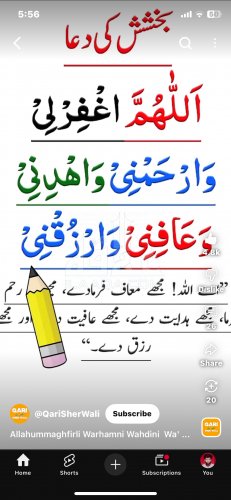 5:56
بخشش کی دعا
اَللّٰهُمَّ اغْفِرْلِيْ
وَارْحَمْنِيْ وَاهْدِنِيْ
وَعَافِنِيْ وَارْزُقْنِيْ
اللہ! مجھے معاف فرمادے، مجھے رحم
مجھے ہدایت دے، مجھے عافیت دے اور مجھے
رزق دے۔“
Dislike
Share
20
QARI
@QariSherWali
Subscribe
Allahummaghfirli Warhamni Wahdini Wa'...
Home
Shorts
Subscriptions
You